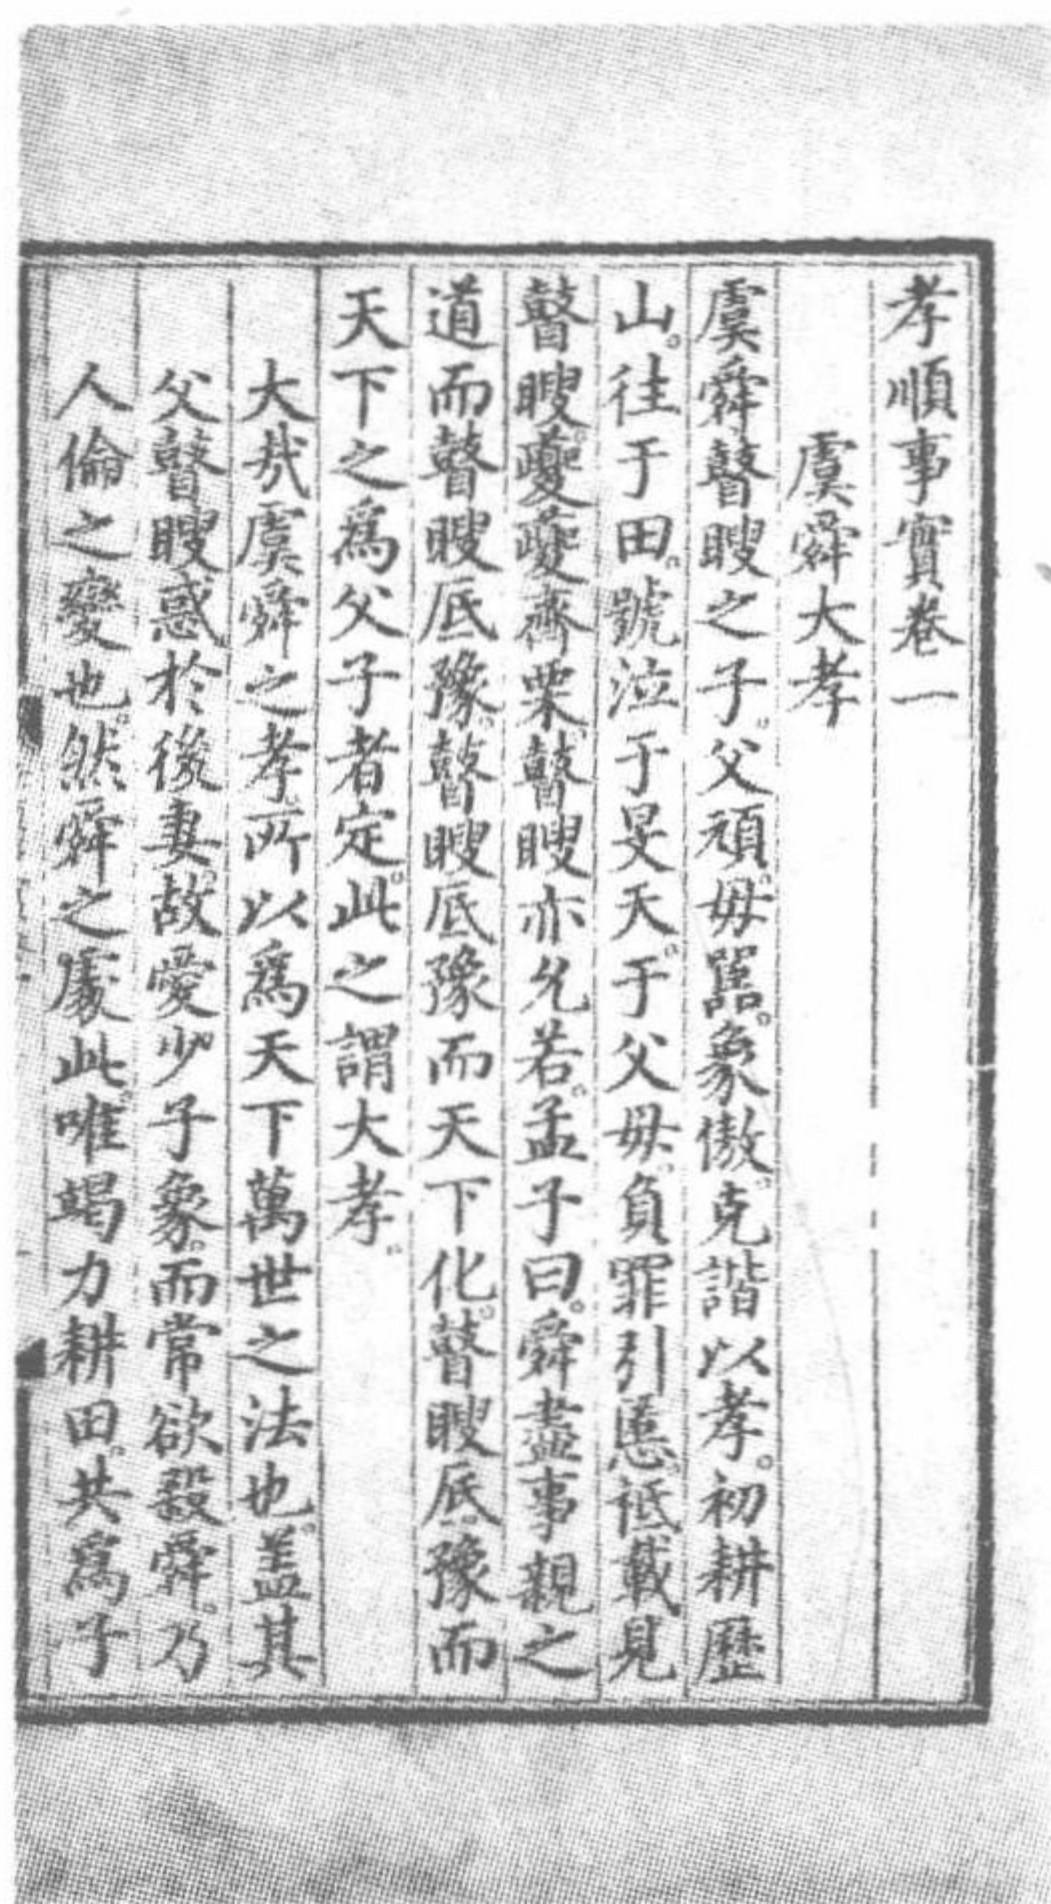 孝順事實卷一
虞舜大孝
虞舜瞽瞍之子。父頑。母嚚。象傲。克諧以孝。初耕歷
山。往于田。號泣于旻天。于父母。負罪引慝。祗載見
瞽瞍。夔夔齋栗。瞽瞍亦允若。孟子曰。舜盡事親之
道而瞽瞍厎豫。瞽瞍厎豫而天下化。瞽瞍厎豫而
天下之爲父子者定。此之謂大孝。
大哉虞舜之孝。所以爲天下萬世之法也。盖其
父瞽瞍惑於後妻。故愛少子象。而常欲殺舜。乃
人倫之變也。然舜之處此。唯竭力耕田。共爲子